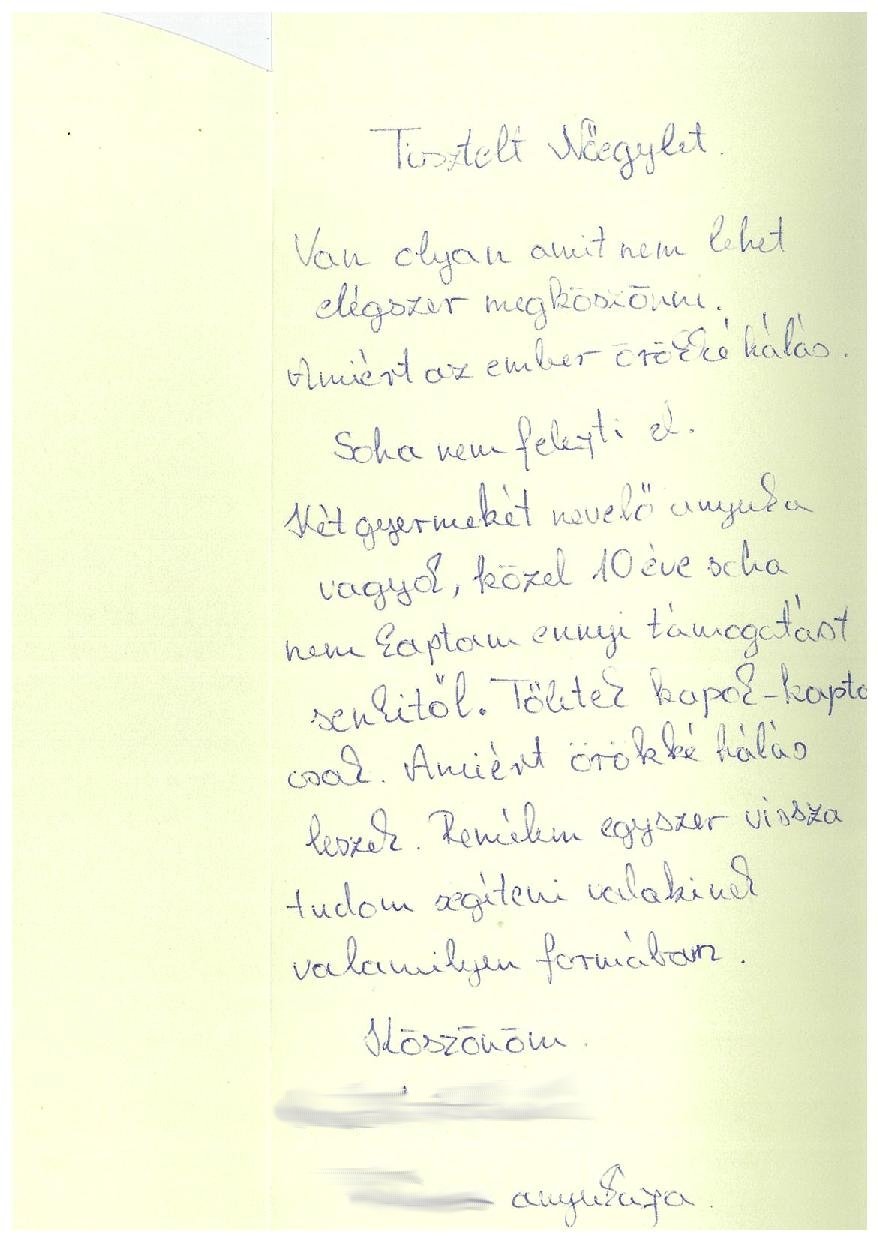 Tisztelt Nőegylet.
Van olyan amit nem lehet
elégszer megköszönni.
Amiért az ember örökké hálás.
Soha nem felejti el.
Két gyermekét nevelő anyuka
vagyok, közel 10 éve soha
nem kaptam ennyi támogatást
senkitől. Tőletek kapok-kapto
csak. Amiért örökké hálás
leszek. Remélem egyszer vissza
tudom segíteni valakinek
valamilyen formában.
Köszönöm.
anyukája.